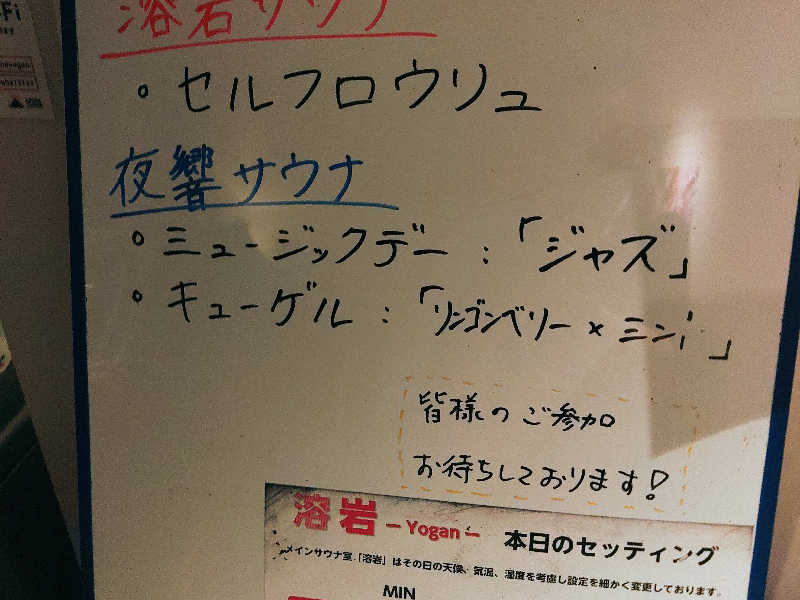 溶岩サウナ
・セルフロウリュ
夜響サウナ
・ミュージックデー:「ジャズ」
・キューゲル:「リンゴンベリー×ミント」
皆様のご参加
お待ちしております!
溶岩 ーYoganー 本日のセッティング
メインサウナ室「溶岩」はその日の天候、気温、湿度を考慮し設定を細かく変更しております。
MIN